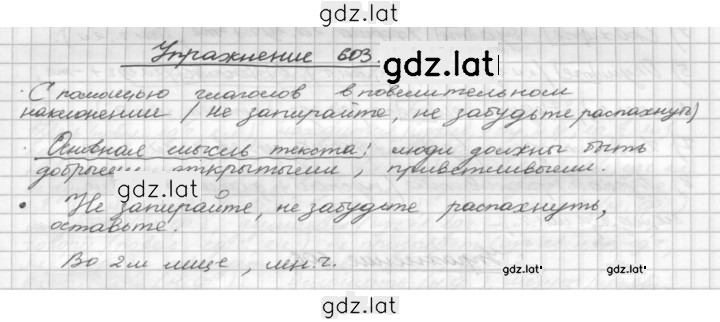 gdz.lat
Упражнение 603.
gdz.lat
С помощью глаголов в повелительном
наклонении (не запирайте, не забудьте распахнуть)
Основная мысль текста: люди должны быть
добрыми, открытыми, приветливыми.
gdz.lat
• Не запирайте, не забудьте распахнуть,
оставьте.
Во 2м лице, мн.ч.
gdz.lat gdz.lat
gdz.lat